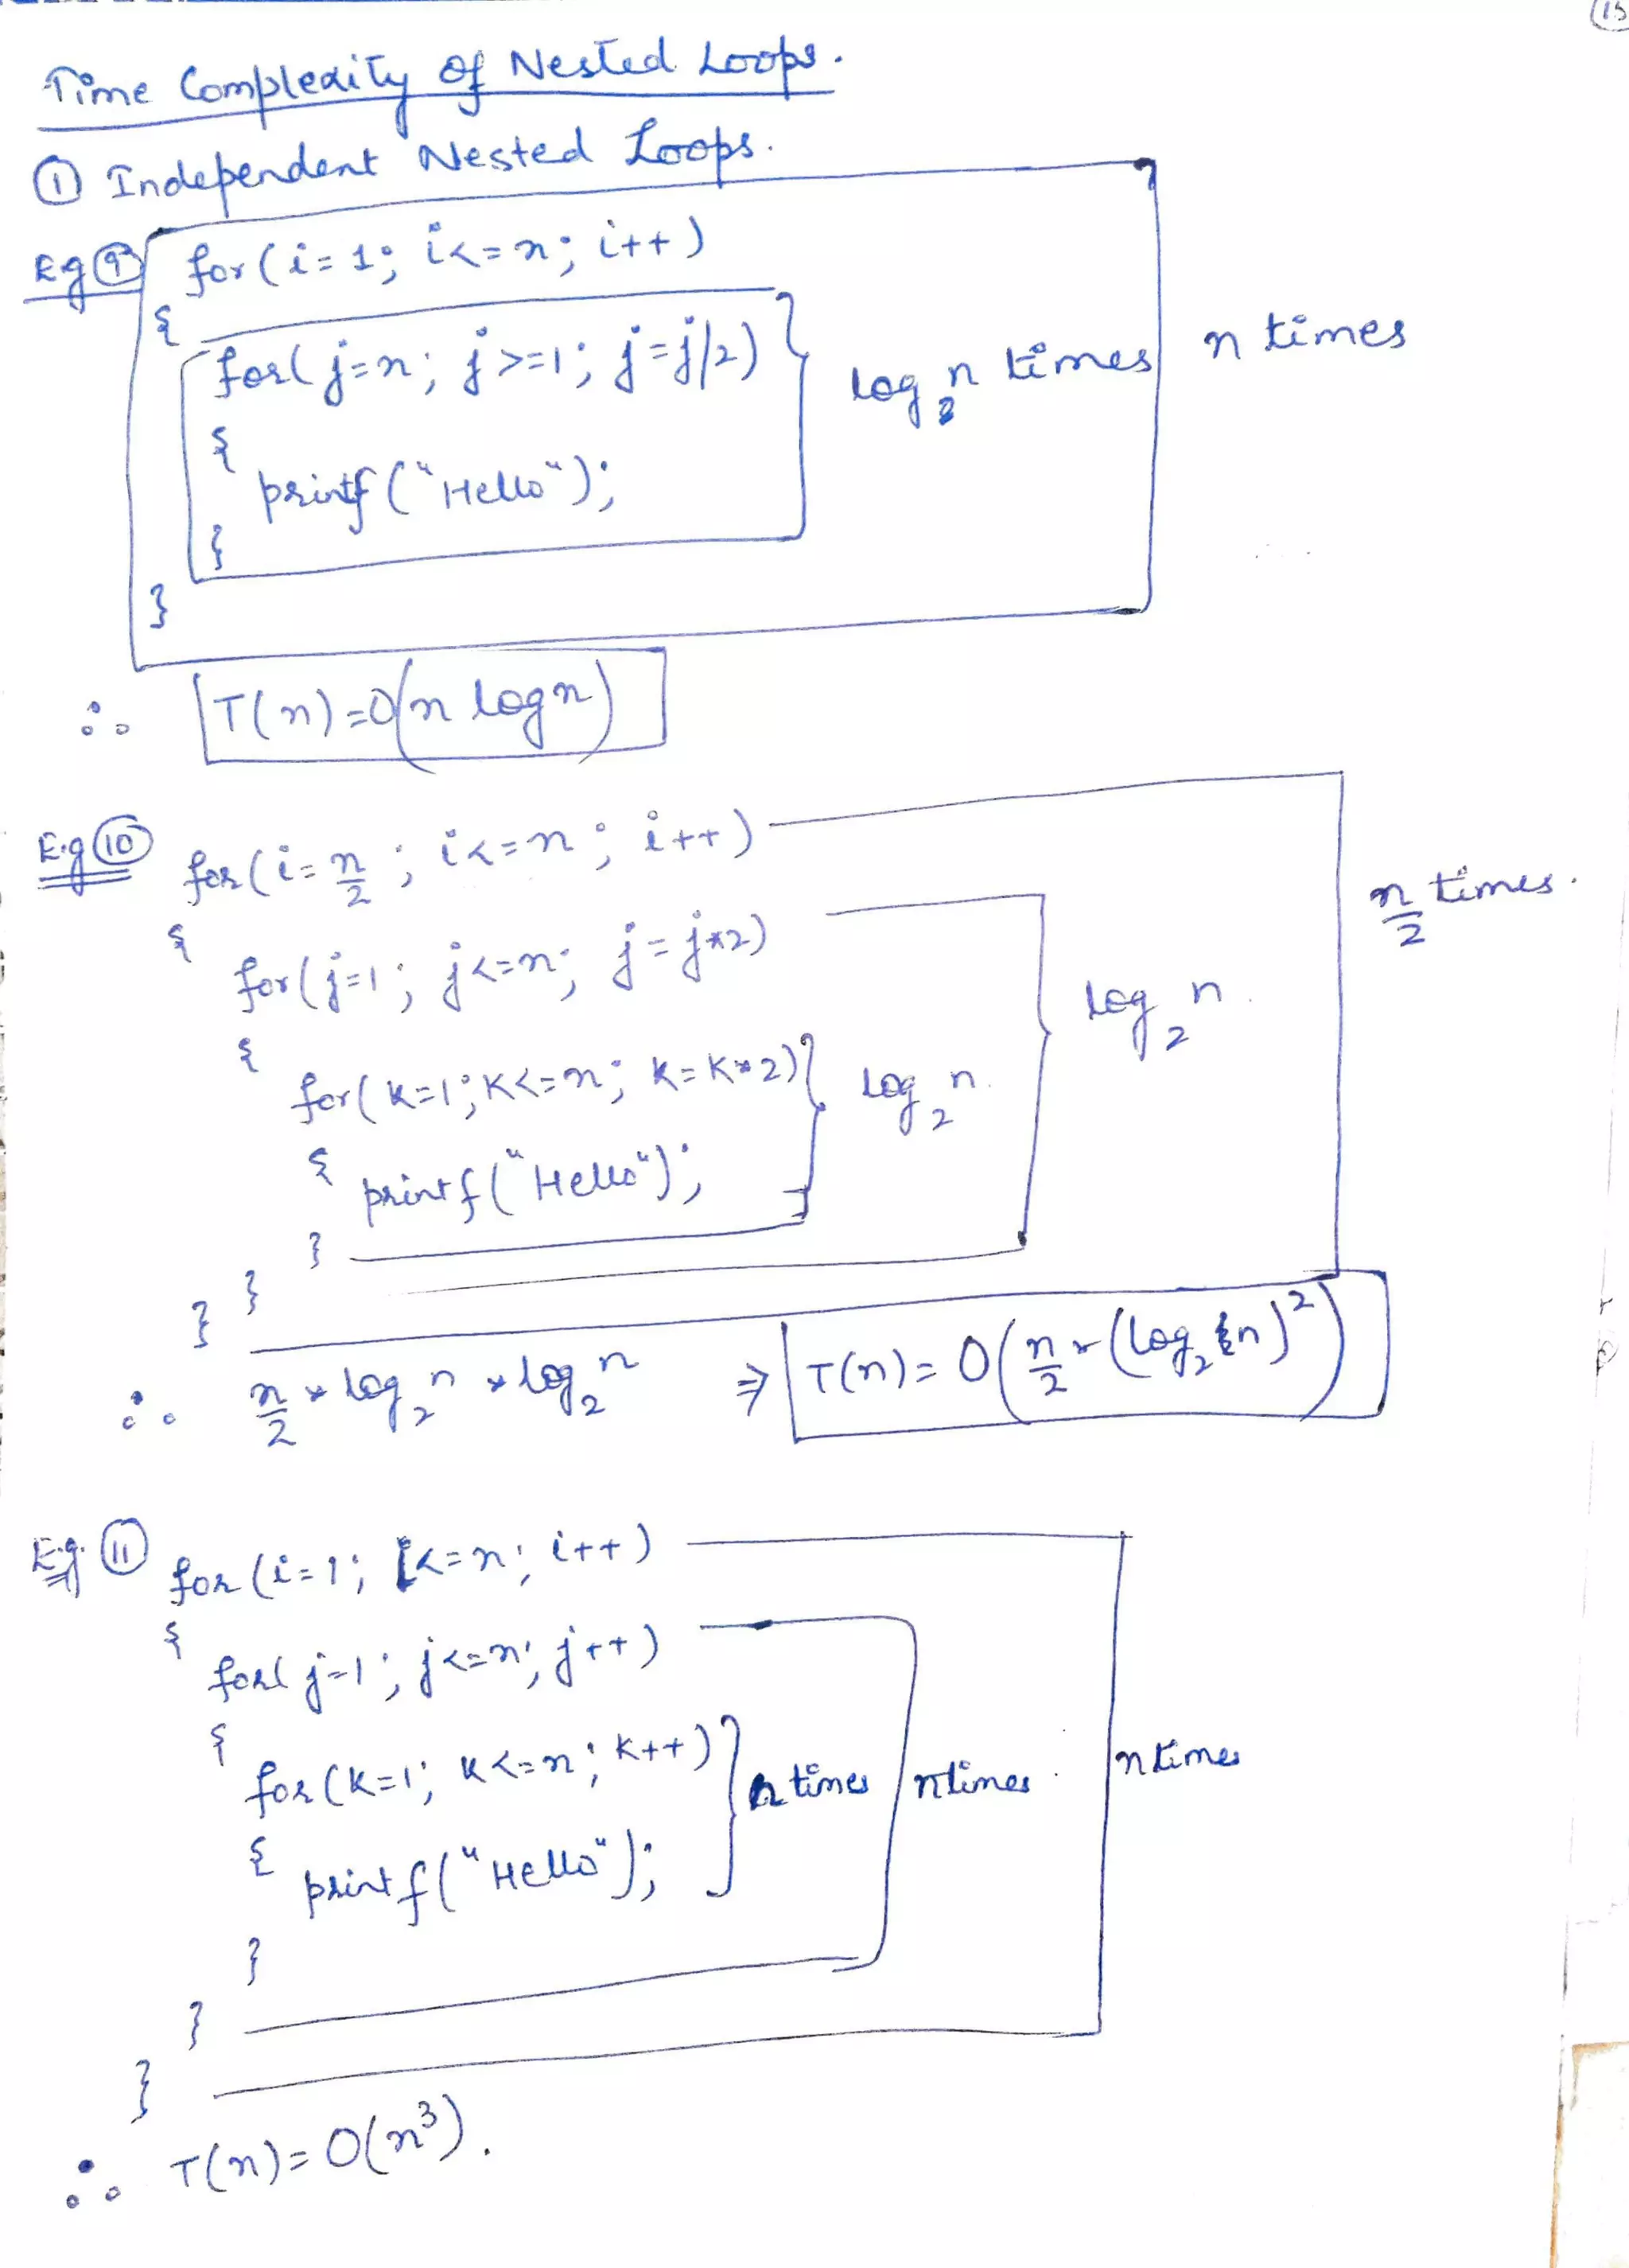 15
Time Complexity of Nested Loops.
① Independent Nested Loops.
Eg ⑨ for(i=1; i<=n; i++)
{
for(j=n; j>=1; j=j/2)
{
printf("Hello");
}
}
log₂n times
n times
∴ T(n)=O(n logn)
E.g ⑩ for(i=n/2; i<=n; i++)
{
for(j=1; j<=n; j=j*2)
{
for(k=1; k<=n; k=k*2)
{ printf("Hello");
}
}
}
log₂n
log₂n
n/2 times.
∴ n/2 * log₂n * log₂n ⇒ T(n)= O(n/2 * (log₂n)²)
E.g. ⑪ for(i=1; i<=n; i++)
{
for(j=1; j<=n; j++)
{
for(k=1; k<=n; k++)
{ printf("Hello");
}
}
}
n times
n times
n times
∴ T(n)= O(n³).